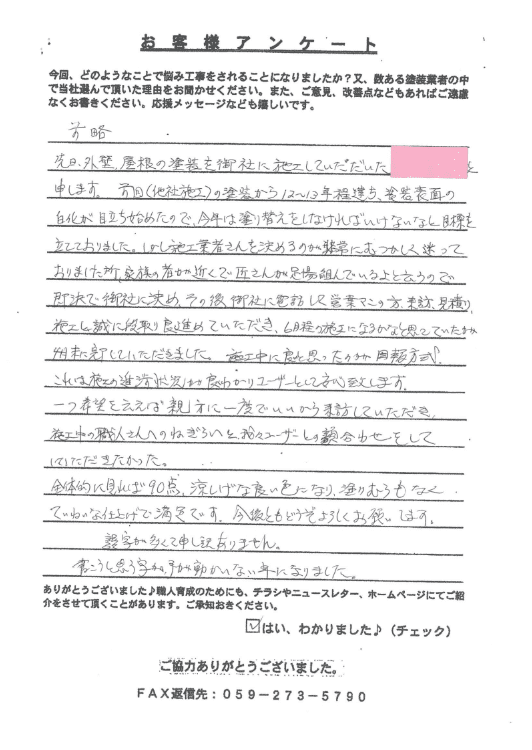 お客様アンケート
今回、どのようなことで悩み工事をされることになりましたか？又、数ある塗装業者の中
で当社選んで頂いた理由をお聞かせください。また、ご意見、改善点などもあればご遠慮
なくお書きください。応援メッセージなども嬉しいです。
前略
先日、外壁、屋根の塗装を御社に施工していただいた
申します。前回(他社施工)の塗装から12〜13年程経ち、塗装表面の
白化が目立ち始めたので、今年は塗り替えをしなければいけないなと目標を
立てておりました。しかし施工業者さんを決めるのが非常にむつかしく迷って
おりました所、家族の者が近くで匠さんが足場組んでいるよと言うので
即決で御社に決め、その後御社に電話して営業マンの方、来訪、見積り、
施工と誠に段取り良く進めていただき、6月程の施工になるかなと思っていたが
月末に完了していただきました。施工中に良と思ったのが回覧方式、
これは施工の進渉状況が良わかりユーザーとして安心致します。
一つ希望を言えば親方に一度でいいから来訪していただき、
施工中の職人さんへのねぎらいと、我々ユーザーとの顔合わせをして
いただきたかった。
全体的に見れば90点、涼しげな良い色になり、塗りむらもなく、
ていねいな仕上げで満足です。今後ともどうぞよろしくお願いします。
誤字が多くて申し訳ありません。
書こうと思う字が、手が動かない年になりました。
ありがとうございました♪職人育成のためにも、チラシやニュースレター、ホームページにてご紹
介をさせて頂くことがあります。ご承知おきください。
☑はい、わかりました♪（チェック）
ご協力ありがとうございました。
FAX返信先：059－273－5790